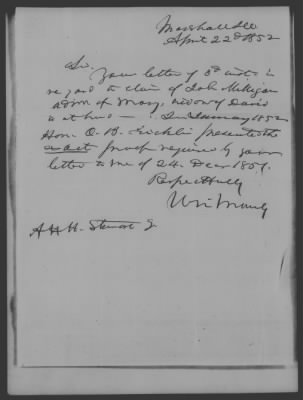 Marshall Ills
April 22d 1852
Sir.
Your letter of 3d inst in
regard to claim of Milligan
admr of Mary, widow of David
is at hand — In January 1852
Hon. O. B. Ficklin presented the
exact proof required by your
letter to me of 24. Decr 1851.
Respectfully
A H H. Stuart